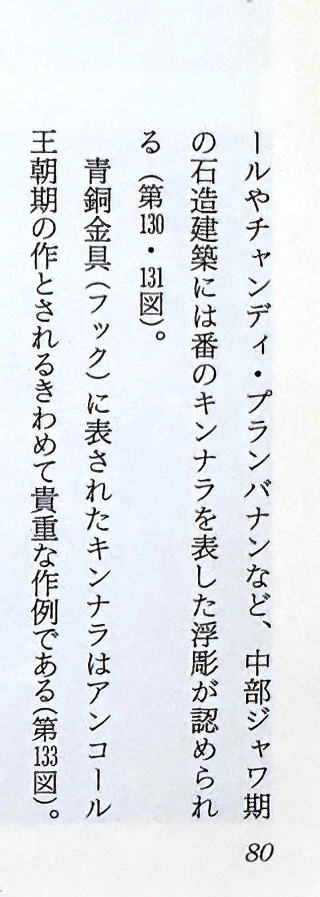 ールやチャンディ・プランバナンなど、中部ジャワ期
の石造建築には番のキンナラを表した浮彫が認められ
る（第130・131図）。
青銅金具（フック）に表されたキンナラはアンコール
王朝期の作とされるきわめて貴重な作例である（第133図）。
80